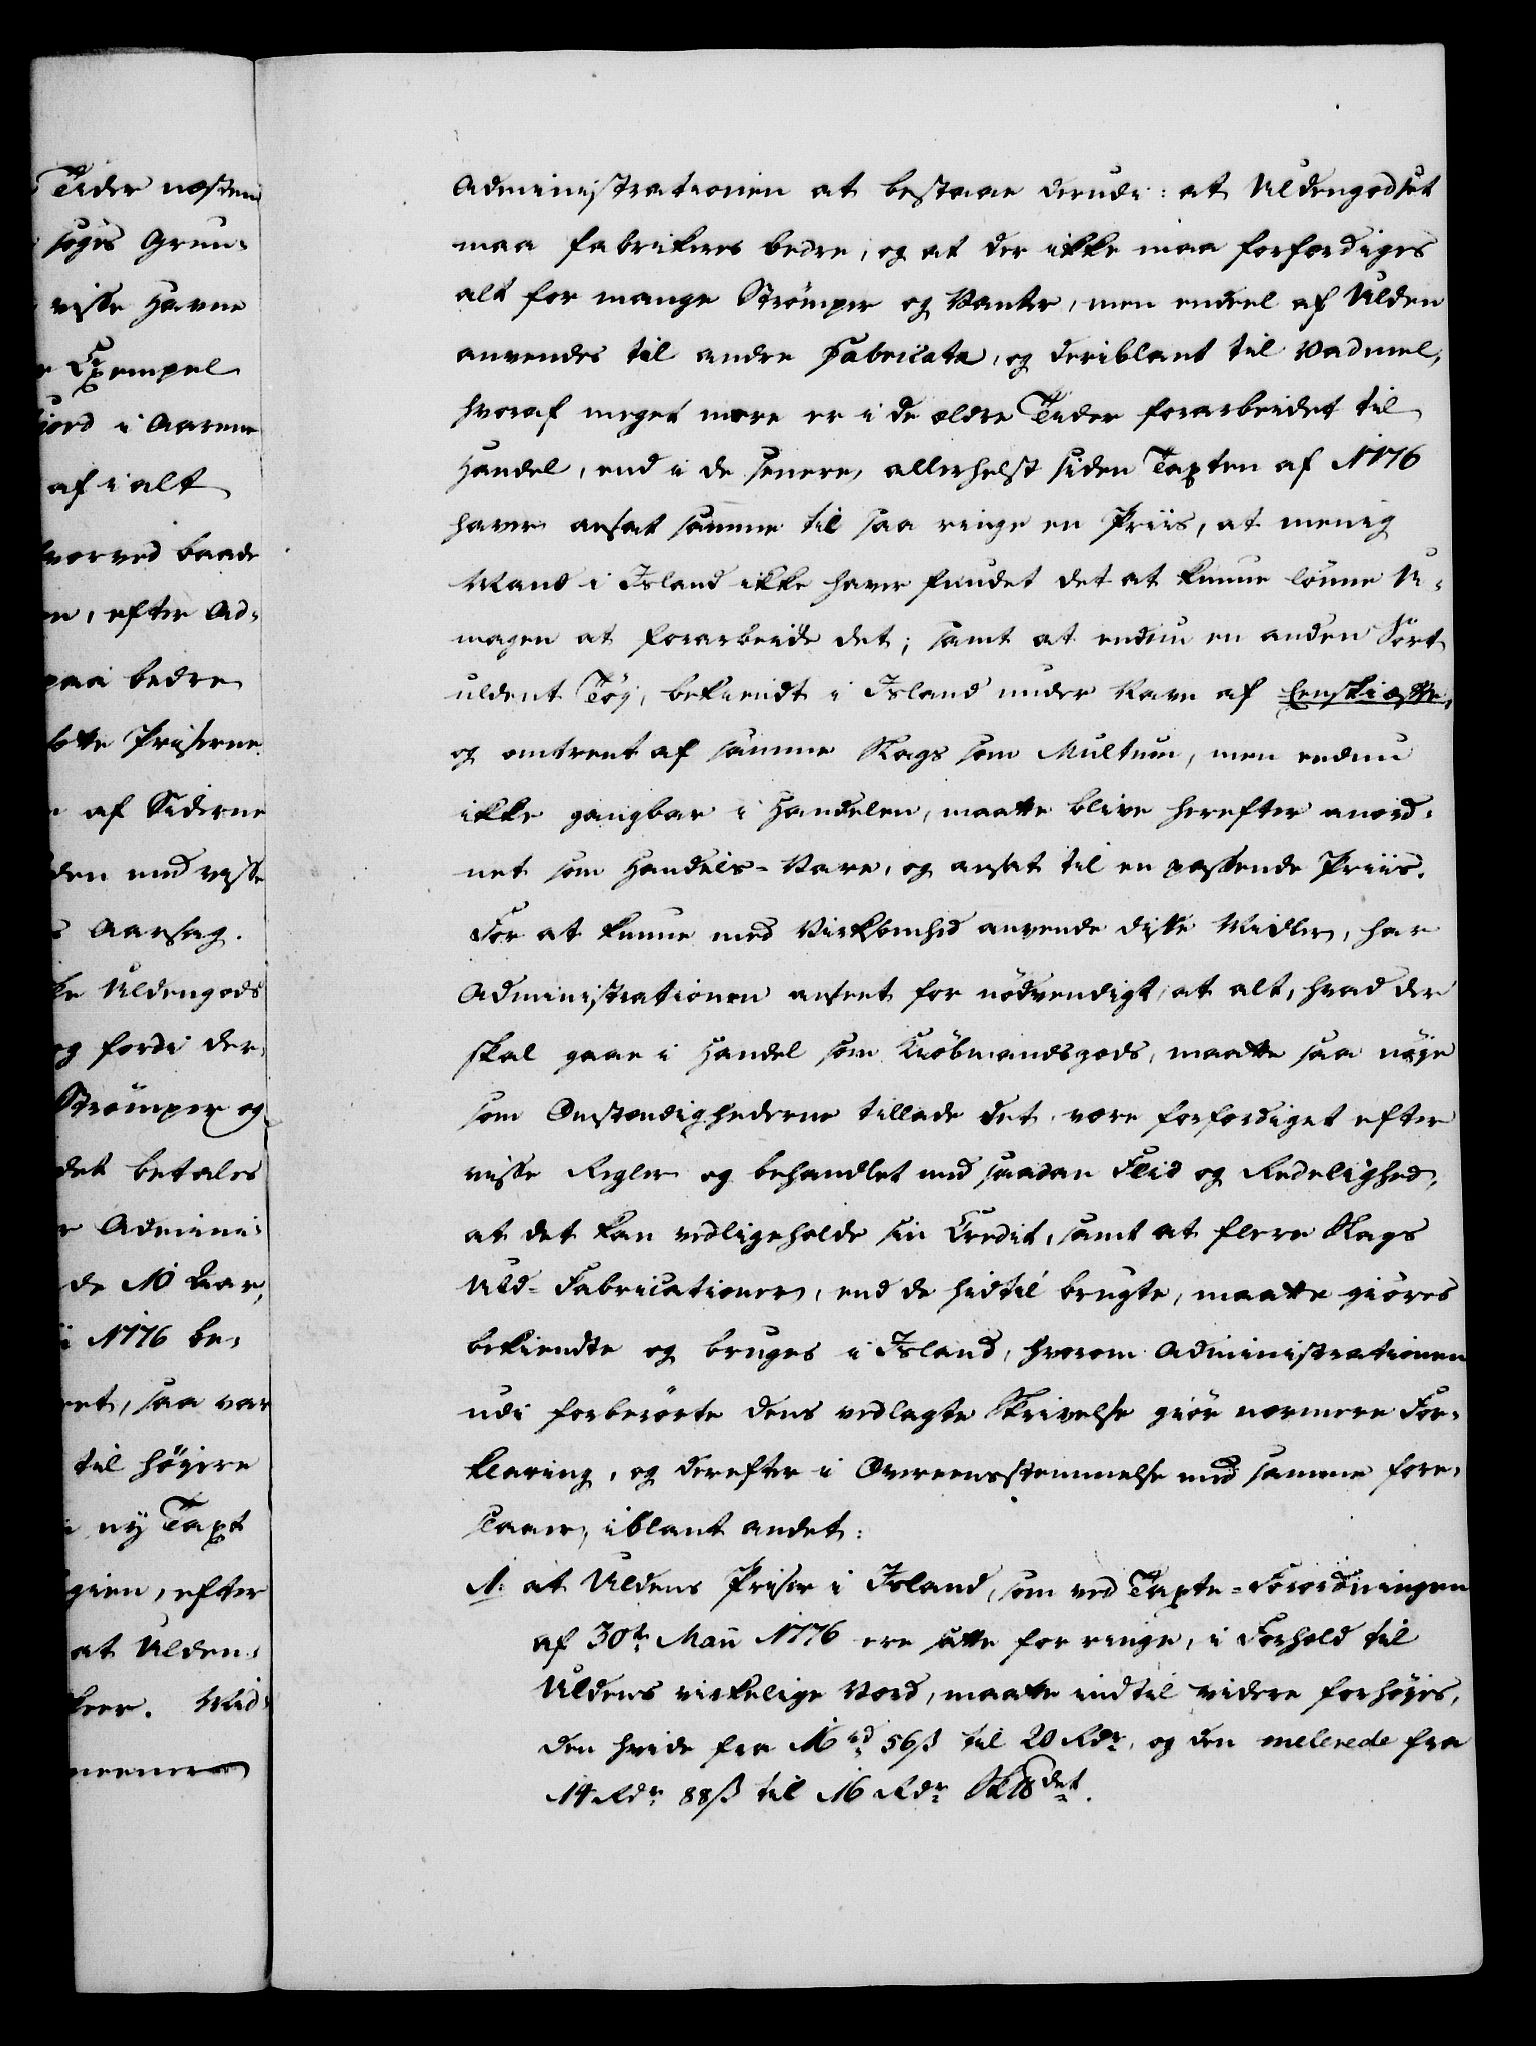 Tider næsten
søges Grun-
visse Havne
Exempel
fiord i Aarene
af i alt
hvorved baade
efter Ad-
paa bedre
Priserne
af Tiderne
den med visse
Aarsag.
Uldengods
og fordi der-
Strömper og
det betales
Admini-
de 10 Aar,
1776 be-
saa var
til höyere
ny Taxt
efter
at Ulden-
Mid-
Administrationen at bestaae derudi: at Uldengodset
maa fabrikeres bedre, og at der ikke maa forfærdiges
alt for mange Strömper og Vanter, men endeel af Ulden
anvendes til andre Fabricata, og deriblant til Vadmel,
hvoraf meget mere er i de ældre Tider forarbeidet til
Handel, end i de senere, allerhelst siden Taxten af 1776
haver ansat samme til saa ringe en Priis, at menig
Mand i Island ikke haver fundet det at kunne lönne U-
magen at forarbeide det; samt at endnu en anden Sort
uldent Töj, bekiendt i Island under Navn af Eenskiæfte,
og omtrent af samme Slags som Multum, men endnu
ikke gangbar i Handelen, maatte blive herefter anord-
net som Handels-Vare, og ansat til en passende Priis.
For at kunne med Virksomhed anvende disse Midler, har
Administrationen anseet for nödvendigt, at alt, hvad der
skal gaae i Handel som Kiöbmandsgods, maatte saa nöye
som Omstændighederne tillade det være forfærdiget efter
visse Regler og behandlet med saadan Flid og Redelighed,
at det kan vedligeholde sin Credit, samt at flere Slags
Uld-Fabricationer, end de hidtil brugte, maatte giöres
bekiendte og bruges i Island, hvorom Administrationen
udi forberörte dens vedlagte Skrivelse giör nærmere For-
klaring, og derefter i Overeensstemmelse med samme fore-
slaaer, iblant andet:
1. at Uldens Priser i Island, som ved Taxte-Forordningen
af 30te Maii 1776 ere satte for ringe, i Forhold til
Uldens virkelige Værd, maatte indtil videre forhöyes,
den hvide fra 16 rd 56 ß til 20 Rdr, og den melerede fra
14 Rdr 88 ß til 16 Rdr Sk℔det.